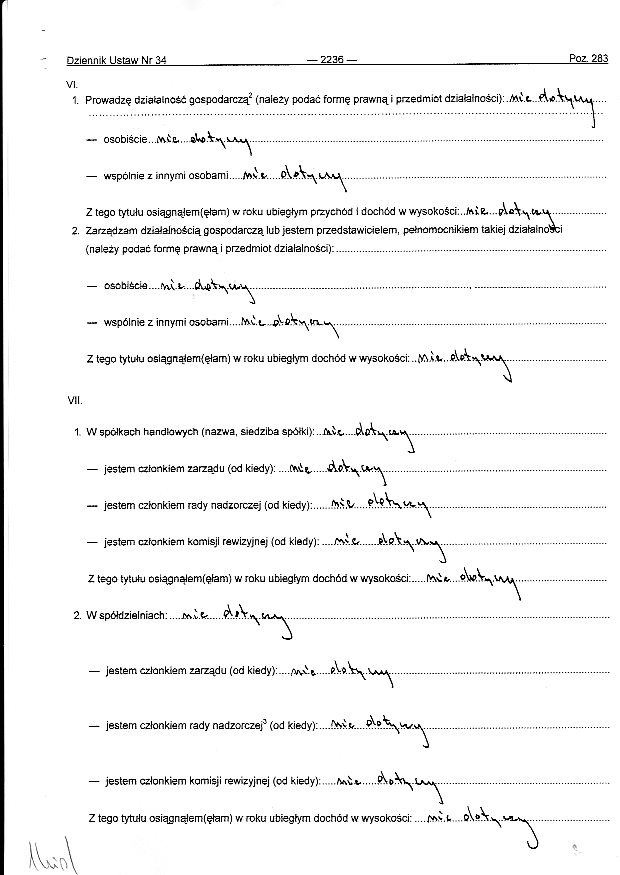 Dziennik Ustaw Nr 34 — 2236 — Poz. 283
VI.
1. Prowadzę działalność gospodarczą² (należy podać formę prawną i przedmiot działalności): nie dotyczy
— osobiście nie dotyczy
— wspólnie z innymi osobami nie dotyczy
Z tego tytułu osiągnąłem(ęłam) w roku ubiegłym przychód i dochód w wysokości: nie dotyczy
2. Zarządzam działalnością gospodarczą lub jestem przedstawicielem, pełnomocnikiem takiej działalności
(należy podać formę prawną i przedmiot działalności):
— osobiście nie dotyczy
— wspólnie z innymi osobami nie dotyczy
Z tego tytułu osiągnąłem(ęłam) w roku ubiegłym dochód w wysokości: nie dotyczy
VII.
1. W spółkach handlowych (nazwa, siedziba spółki): nie dotyczy
— jestem członkiem zarządu (od kiedy): nie dotyczy
— jestem członkiem rady nadzorczej (od kiedy): nie dotyczy
— jestem członkiem komisji rewizyjnej (od kiedy): nie dotyczy
Z tego tytułu osiągnąłem(ęłam) w roku ubiegłym dochód w wysokości: nie dotyczy
2. W spółdzielniach: nie dotyczy
— jestem członkiem zarządu (od kiedy): nie dotyczy
— jestem członkiem rady nadzorczej³ (od kiedy): nie dotyczy
— jestem członkiem komisji rewizyjnej (od kiedy): nie dotyczy
Z tego tytułu osiągnąłem(ęłam) w roku ubiegłym dochód w wysokości: nie dotyczy